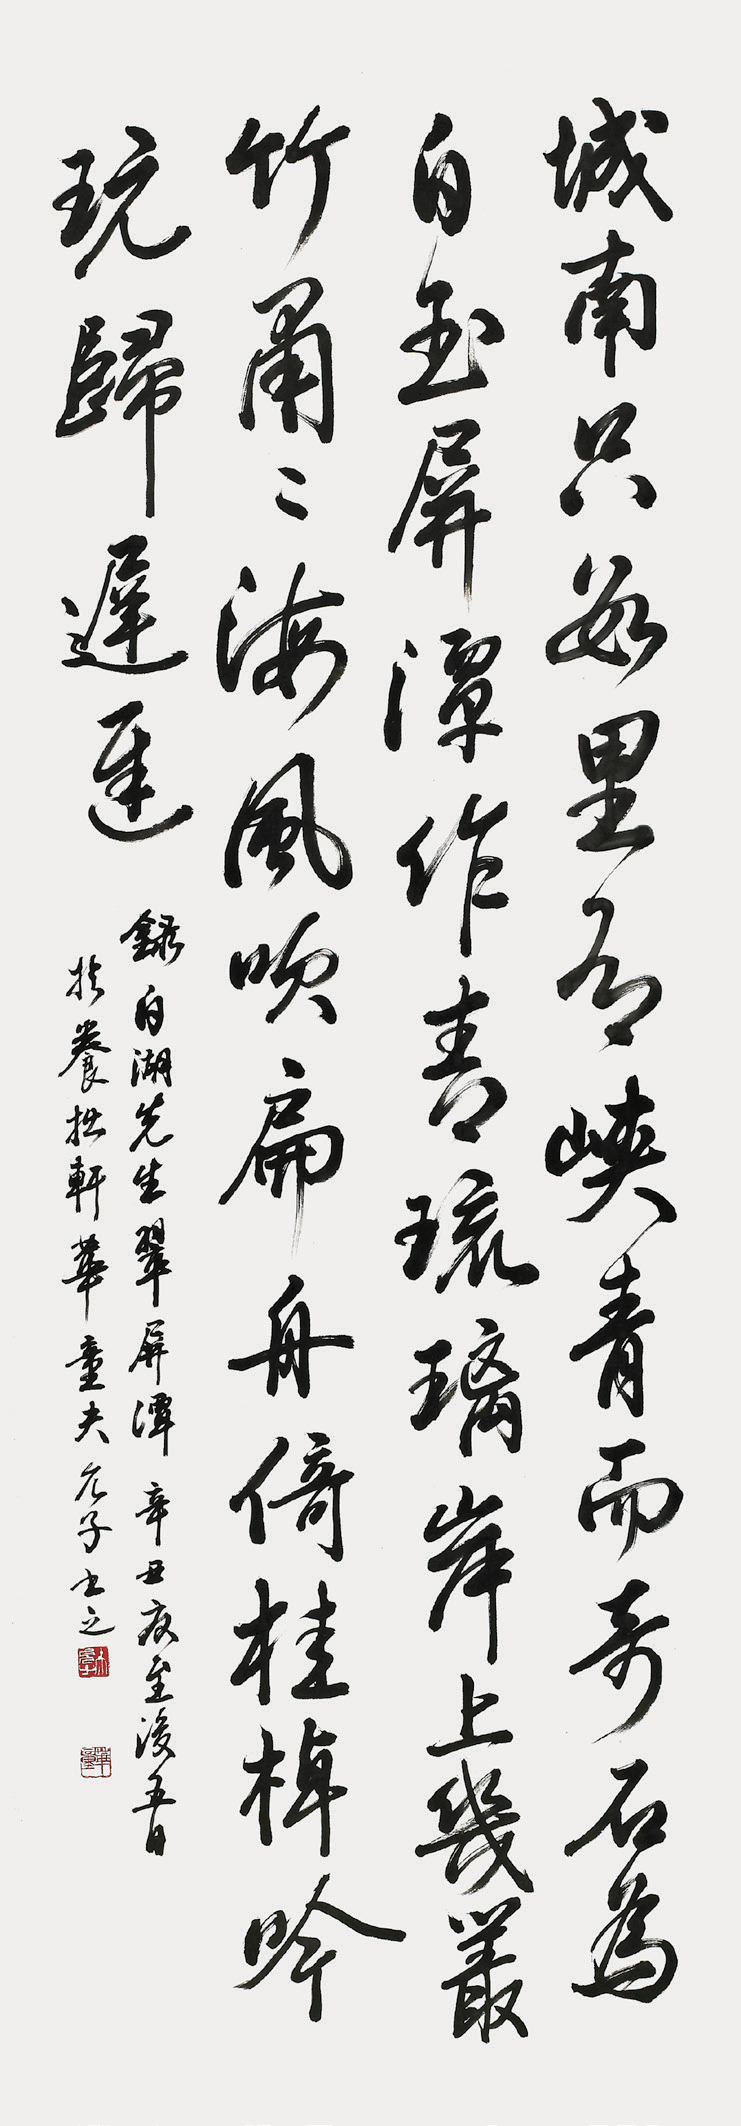 城南只數里有峽青而奇石為
白玉屏潭作青琉璃岸上幾叢
竹肅〻海風吹扁舟倚桂棹吟
玩歸遲遲
錄白湖先生翠屏潭 辛丑夏至後五日
於養拙軒華童夫 子書之